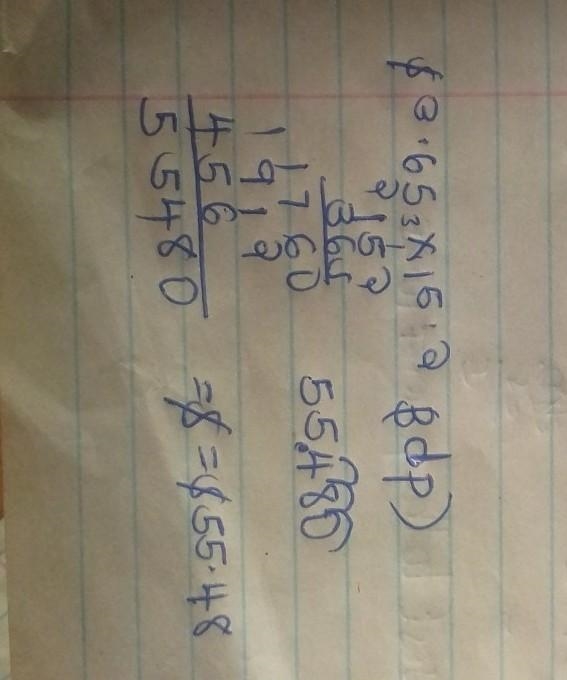 $3.65 × 15.2 3dp)
152
365
1760 55.480
1912
456
55480 =$ =$55.48